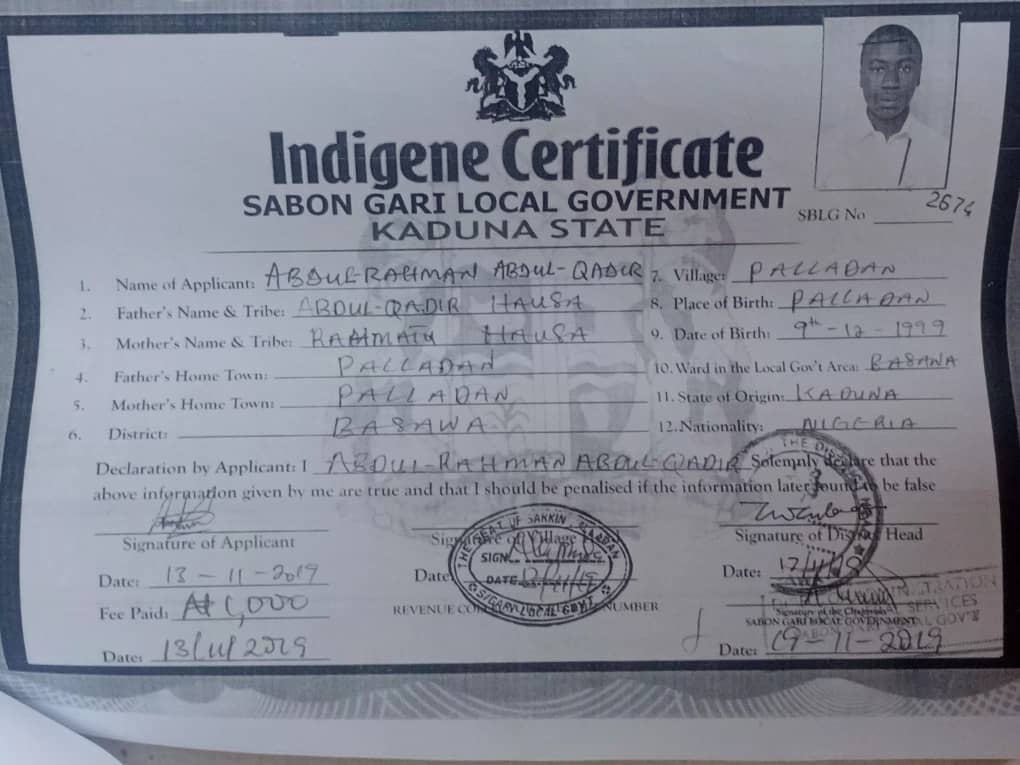 Indigene Certificate
SABON GARI LOCAL GOVERNMENT
KADUNA STATE
SBLG No 2674
1. Name of Applicant: ABDUL-RAHMAN ABDUL-QADIR
7. Village: PALLADAN
2. Father's Name & Tribe: ABDUL-QADIR HAUSA
8. Place of Birth: PALLADAN
3. Mother's Name & Tribe: RAHMATU HAUSA
9. Date of Birth: 9th-12-1999
4. Father's Home Town: PALLADAN
10. Ward in the Local Gov't Area: BASAWA
5. Mother's Home Town: PALLADAN
11. State of Origin: KADUNA
6. District: BASAWA
12. Nationality: NIGERIA
Declaration by Applicant: I ABDUL-RAHMAN ABDUL-QADIR Solemnly declare that the
above information given by me are true and that I should be penalised if the information later found to be false
Signature of Applicant
Signature of Village
Signature of District Head
THE SEAT OF SARKIN
SIGN.
DATE
LOCAL GOVT.
THE DISTRICT HEAD
Date: 13-11-2019
Date:
Date:
Fee Paid: ₦1,000
REVENUE NUMBER
Signature of the
SABON GARI LOCAL GOVERNMENT
SERVICES
Date: 13/11/2019
Date: 19-11-2019